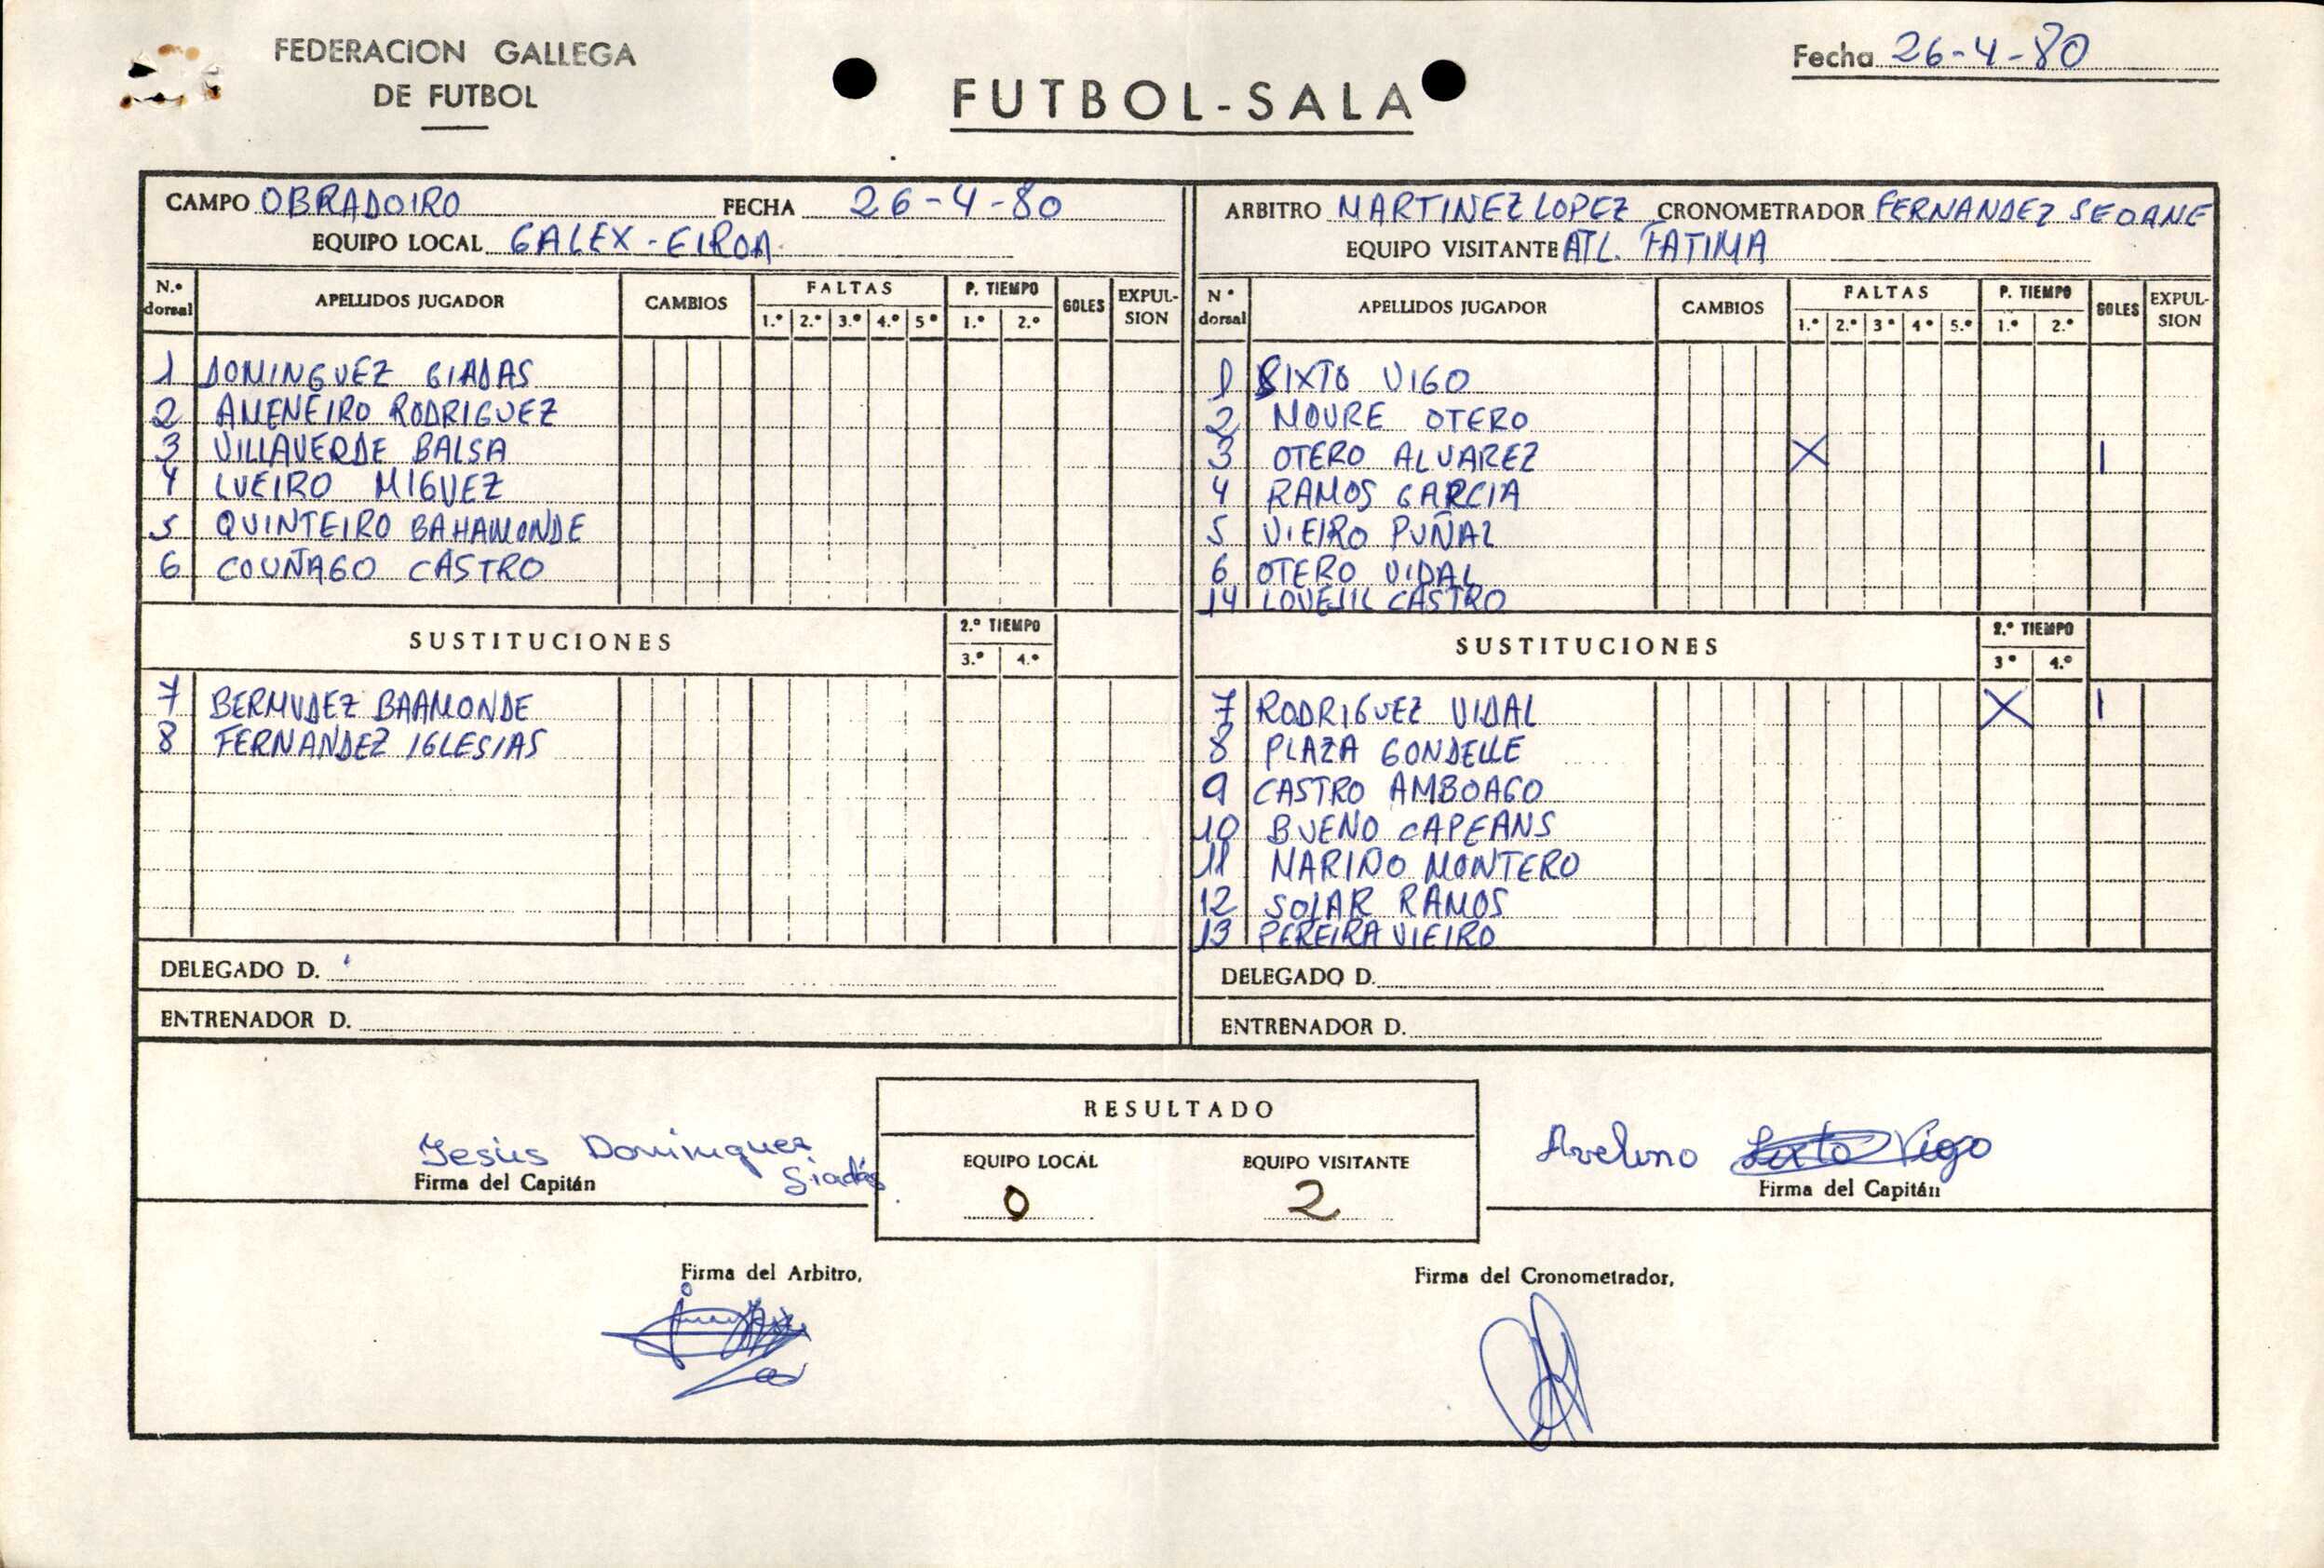 FEDERACION GALLEGA
DE FUTBOL
FUTBOL-SALA
Fecha 26-4-80
CAMPO OBRADOIRO FECHA 26-4-80
EQUIPO LOCAL GALEX-EIROA
N.º dorsal APELLIDOS JUGADOR CAMBIOS FALTAS 1.º 2.º 3.º 4.º 5º P. TIEMPO 1.º 2.º GOLES EXPULSION
1 DOMINGUEZ GIADAS
2 AMENEIRO RODRIGUEZ
3 VILLAVERDE BALSA
4 LUEIRO MIGUEZ
5 QUINTEIRO BAHAMONDE
6 COUÑAGO CASTRO
SUSTITUCIONES 2.º TIEMPO 3.º 4.º
7 BERMUDEZ BAAMONDE
8 FERNANDEZ IGLESIAS
DELEGADO D.
ENTRENADOR D.
ARBITRO MARTINEZ LOPEZ CRONOMETRADOR FERNANDEZ SEOANE
EQUIPO VISITANTE ATL. FATIMA
Nº dorsal APELLIDOS JUGADOR CAMBIOS FALTAS 1.º 2.º 3º 4º 5.º P. TIEMPO 1.º 2.º GOLES EXPULSION
1 SIXTO VIGO
2 MOURE OTERO
3 OTERO ALVAREZ X 1
4 RAMOS GARCIA
5 VIEIRO PUÑAL
6 OTERO VIDAL
14 CASTRO
SUSTITUCIONES 2.º TIEMPO 3º 4.º
7 RODRIGUEZ VIDAL X 1
8 PLAZA GONDELLE
9 CASTRO AMBOAGO
10 BUENO CAPEANS
11 MARIÑO MONTERO
12 SOLAR RAMOS
13 PEREIRA VIEIRO
DELEGADO D.
ENTRENADOR D.
Jesús Dominguez
Giadás
Firma del Capitán
RESULTADO
EQUIPO LOCAL EQUIPO VISITANTE
0 2
Avelino Sixto Vigo
Firma del Capitán
Firma del Arbitro,
Firma del Cronometrador,